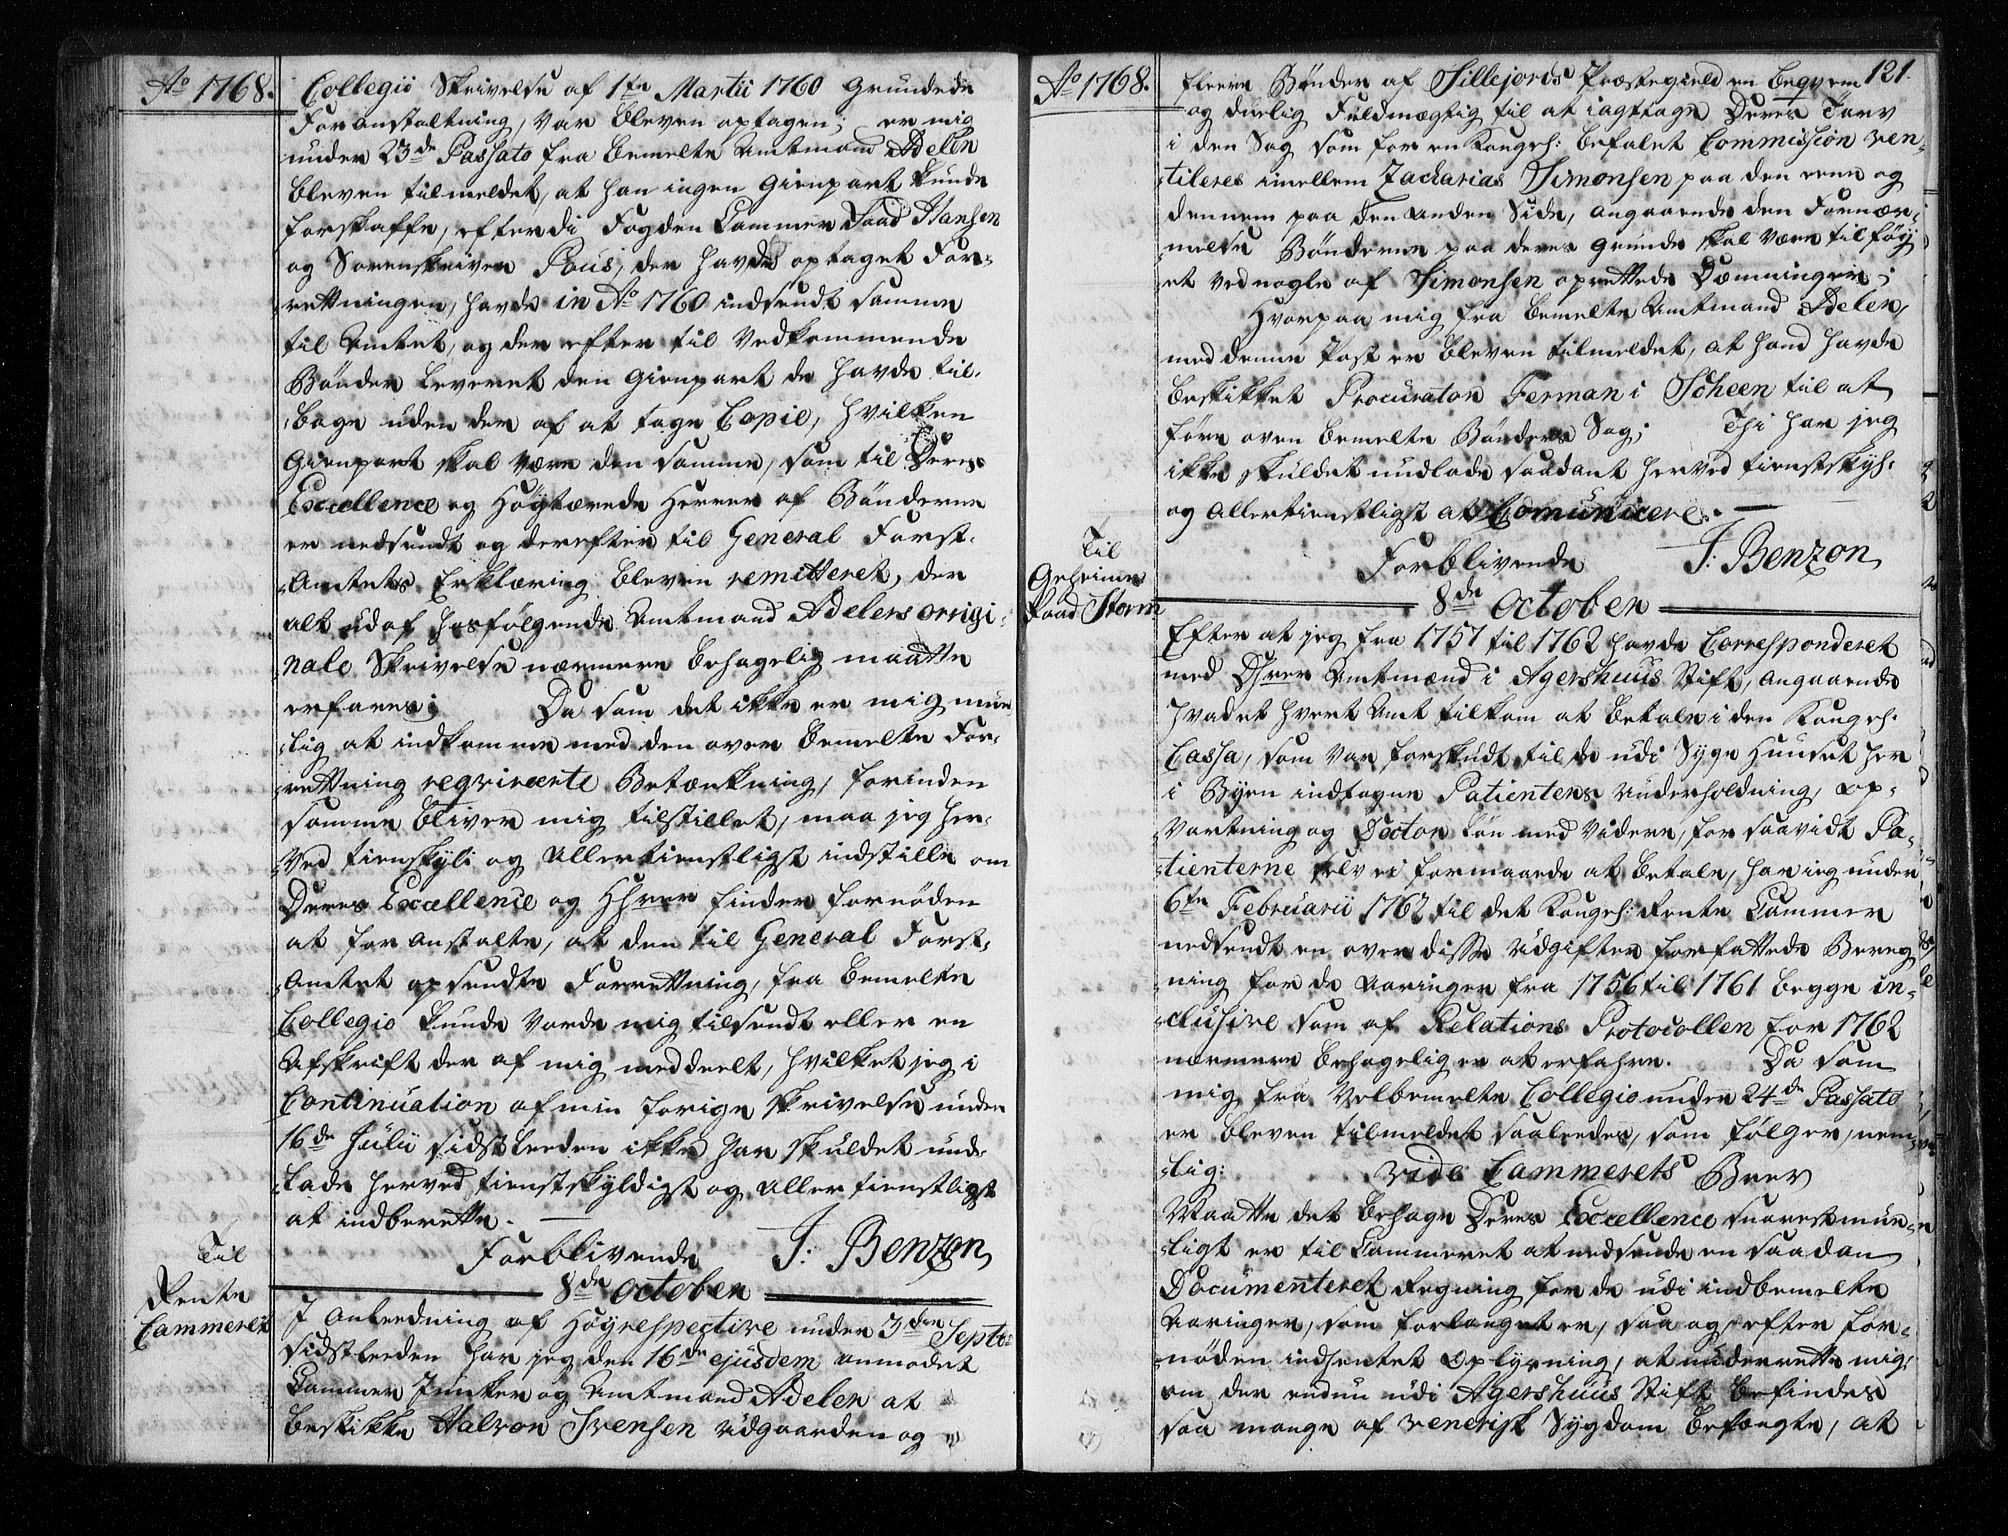 Ao 1768.
Collegii Skrivelse af 1te Martii 1760 grundede
Foranstaltning, var bleven optagen; er mig
under 23de Passato fra bemelte Amtmand Adeler
bleven tilmeldet, at han ingen Gienpart kunde
forskaffe, efterdi Fogden Cammer Raad Hansen
og Sorenskriver Paus, der havde optaget For-
rettningen, havde in Ao 1760 indsendt samme
til Amtet, og der efter til Vedkommende
Bønder leveret den Gienpart de havde til-
bage uden der af at tage Copie, hvilken
Gienpart skal være den samme, som til Deres
Excellence og Høytærede Herrer af Bønderne
er nedsendt og derefter til General Forst-
Amtets Erklæring bleven remitteret, der
alt udaf hosfølgende Amtmand Adelers origi-
nale Skrivelse nærmere behagelig maatte
erfares; Da som det ikke er mig mue-
lig at indkomme med den over bemelte For-
rettning reqvirerte Betænkning, forinden
samme bliver mig tilstillet, maa jeg her-
ved tienskyld og allertienstligst indstille om
Deres Excellence og Hhrer finder fornøden
at foranstalte, at den til General Forst-
Amtet opsendte Forrettning, fra bemelte
Collegio kunde vorde mig tilsendt eller en
Afskrift der af mig meddeelt, hvilket jeg i
Continuation af min forige Skrivelse under
16de Julii sidstleeden ikke har skuldet und-
lade herved tienstskyldigst og allertienstligst
at indberette.
Forblivende J: Benzon
Til
Rente
Cammeret
8de October
I Anledning af Høyrespective under 3den Septbr
sidstleeden har jeg den 16de ejusdem anmodet
Cammer Junker og Amtmand Adeler at
beskikke Halvor Svensen Udgaarden og
Ao 1768.
121.
fleere Bønder af Sillejords Præstegield en beqvem
og duelig Fuldmægtig til at iagttage Deres Tarv
i den Sag som for en Kongel: befalet Commission ven-
tileres imellem Zacharias Simonsen paa den eene og
dennem paa den anden Side, angaaende den Fornær-
melse Bønderne paa deres Grunde skal være tilføy
et ved nogle af Simonsen oprettede Dæmninger;
Hvorpaa mig fra bemelte Amtmand Adeler,
med denne Post er bleven tilmeldet, at hand havde
beskikket Procurator Ferman i Scheen til at
føre oven bemelte Bønders Sag; Thi har jeg
ikke skuldet undlade saadant herved tienstskyl.
og allertienstligst at Comunicere.
Forblivende J: Benzon
Til
Geheime
Raad Storm
8de October
Efter at jeg fra 1757 til 1762 havde Corresponderet
med Dhrer Amtmænd i Agershuus Stift, angaaende
hvad et hvert Amt tilkom at betale i den Kongel.
Cassa, som var forskudt til de udi Syge Huuset her
i Byen indtagne Patienters Underholdning, Op-
vartning og Doctor Løn med videre, for saavidt Pa-
tienterne selv ei formaaede at betale, har jeg under
6te Februarii 1762 til det Kongel: Rente Cammer
nedsendt en over disse Udgifter forfattede Bereg
ning for de Aaringer fra 1756 til 1761 begge in-
clusive som af Relations Protocollen for 1762
nærmere behagelig er at erfahre. Da som
mig fra Velbemelte Collegio under 24de Passato
er bleven tilmeldet saaledes, som følger, nem-
lig: vide Cammerets Brev
Maatte det behage Deres Excellence snarest mue-
ligt er til Cammeret at nedsende en saadan
Documenteret Regning for de udi indbemelte
Aaringer, som forlanget er, saa og, efter for-
nøden indhentet Oplysning, at underrette mig,
om der endnu udi Agershuus Stift befindes
saa mange af venerisk Sygdom befængte, at